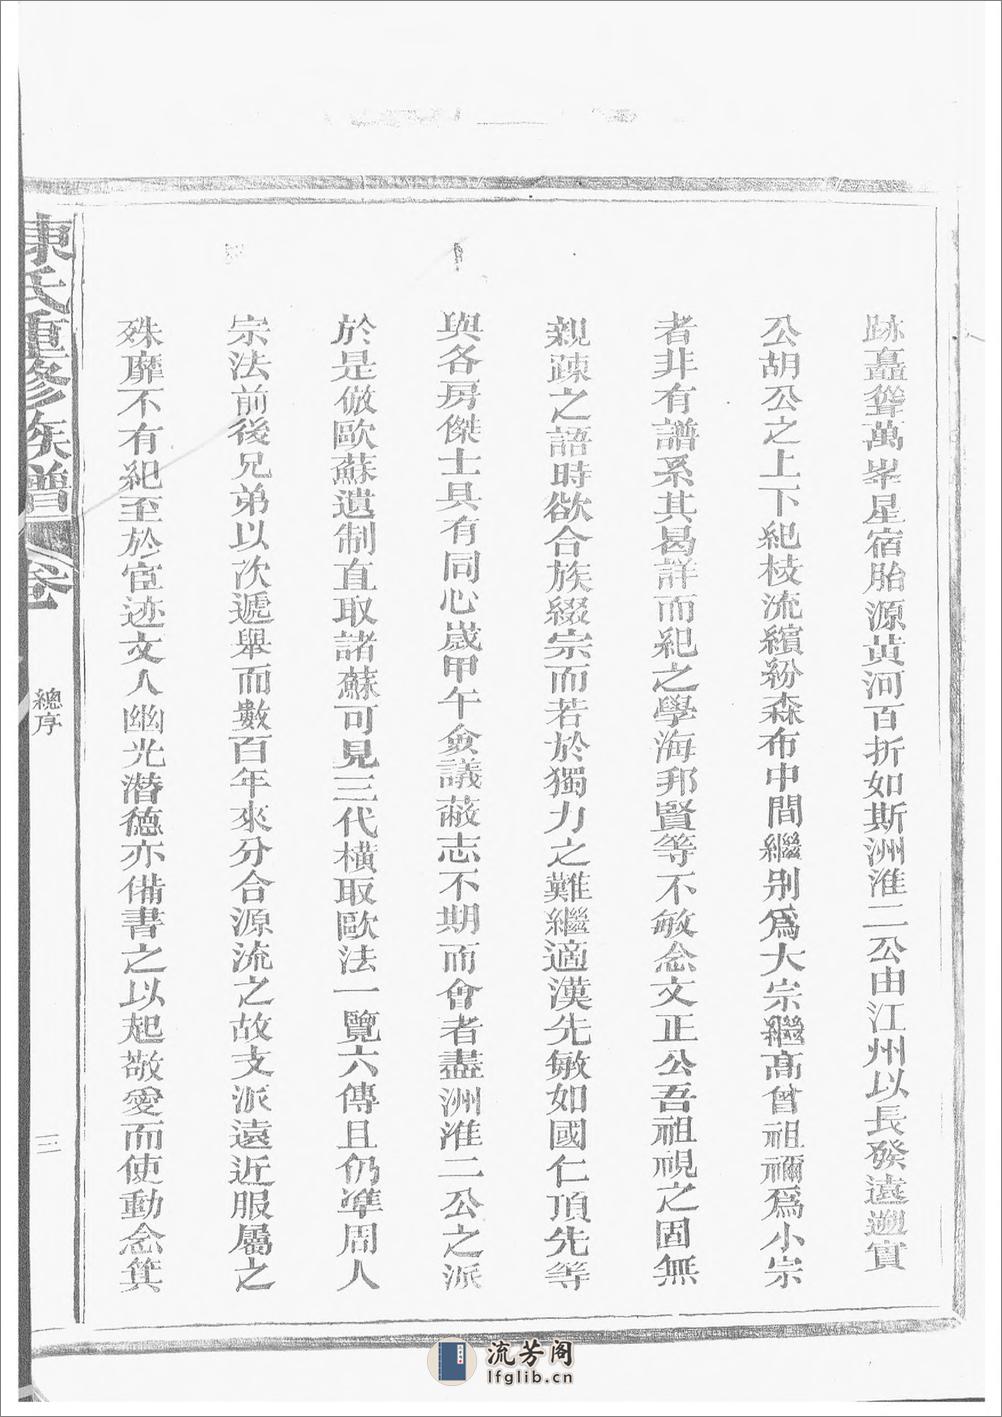 跡矗聳萬峯星宿胎源黃河百折如斯洲淮二公由江州以長發遠遡實
公胡公之上下紀枝流繽紛森布中間繼別爲大宗繼高曾祖禰爲小宗
者非有譜系其曷詳而紀之學海邦賢等不敏念文正公吾祖視之固無
親疎之語時欲合族綴宗而若於獨力之難繼適漢先敏如國仁頂先等
與各房傑士具有同心歲甲午僉議蔽志不期而會者盡洲淮二公之派
於是倣歐蘇遺制直取諸蘇可見三代橫取歐法一覽六傳且仍準周人
宗法前後兄弟以次遞舉而數百年來分合源流之故支派遠近服屬之
殊靡不有紀至於宦迹文人幽光潛德亦備書之以起敬愛而使動念箕
東氏重修族譜
卷一
總序
三
流芳阁
lfglib.cn